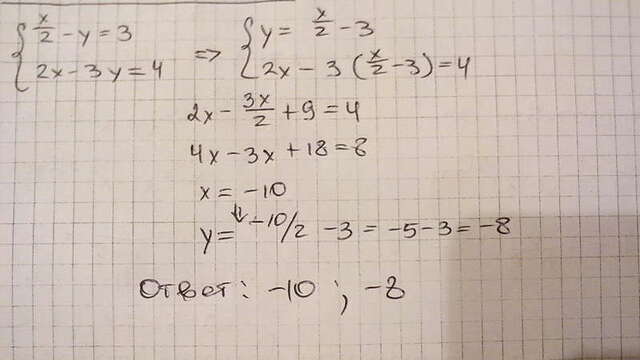 { x/2 - y = 3 => { y = x/2 - 3
{ 2x - 3y = 4 { 2x - 3 (x/2 - 3) = 4
2x - 3x/2 + 9 = 4
4x - 3x + 18 = 8
x = -10
y = -10/2 - 3 = -5 - 3 = -8
Ответ: -10 ; -8